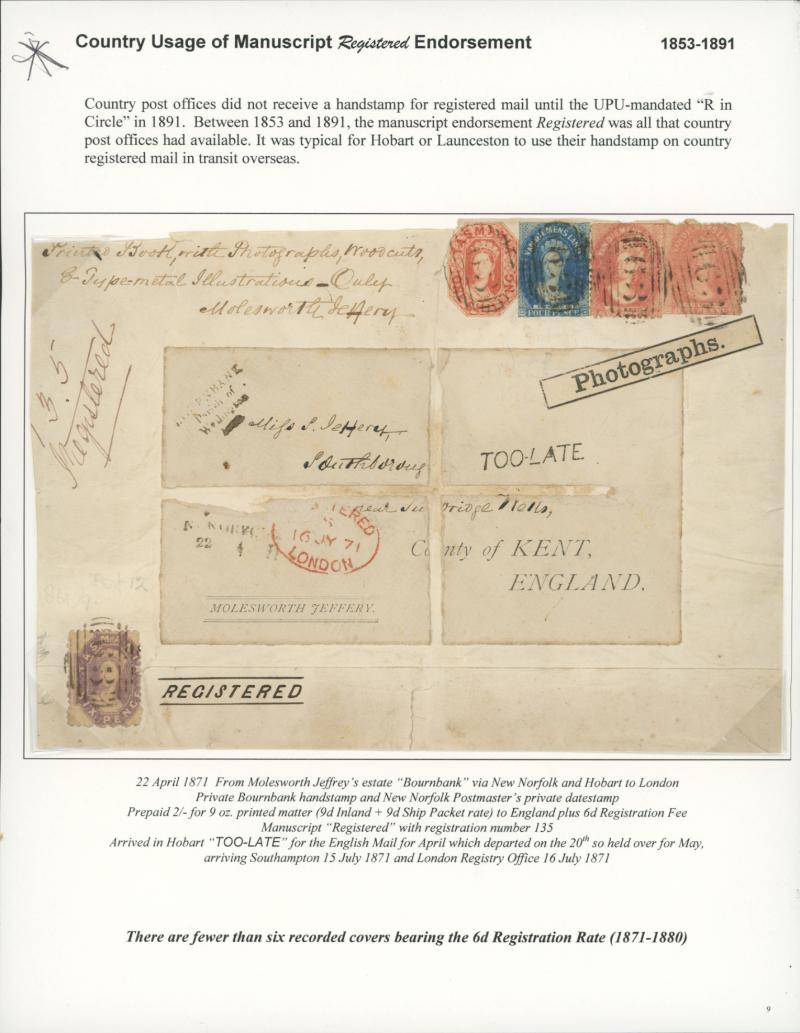 Country Usage of Manuscript Registered Endorsement 1853-1891
Country post offices did not receive a handstamp for registered mail until the UPU-mandated “R in
Circle” in 1891. Between 1853 and 1891, the manuscript endorsement Registered was all that country
post offices had available. It was typical for Hobart or Launceston to use their handstamp on country
registered mail in transit overseas.
Printed Book, with Photographs, Woodcuts,
& Type-metal Illustrations - Only
Molesworth Jeffery
TASMANIA
VAN DIEMENS LAND
FOUR PENCE
Photographs.
135
Registered
BOURNBANK
North of
Miss S. Jeffery,
Southboroug
TOO-LATE
near Tu bridge Wells,
22 4
16 JY 71
LONDON
County of KENT,
ENGLAND.
MOLESWORTH JEFFERY.
SIX PENCE
REGISTERED
22 April 1871 From Molesworth Jeffrey's estate “Bournbank” via New Norfolk and Hobart to London
Private Bournbank handstamp and New Norfolk Postmaster's private datestamp
Prepaid 2/- for 9 oz. printed matter (9d Inland + 9d Ship Packet rate) to England plus 6d Registration Fee
Manuscript “Registered” with registration number 135
Arrived in Hobart “TOO-LATE” for the English Mail for April which departed on the 20th so held over for May,
arriving Southampton 15 July 1871 and London Registry Office 16 July 1871
There are fewer than six recorded covers bearing the 6d Registration Rate (1871-1880)
9